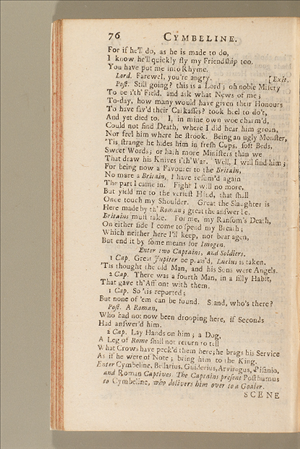 76 CYMBELINE.
For if he'll do, as he is made to do,
I know he'll quickly fly my Friendship too.
You have put me into Rhyme.
Lord. Farewel, you're angry. [Exit.
Post. Still going? this is a Lord; oh noble Misery
To be i'th' Field, and ask what News of me;
To-day, how many would have given their Honours
To have sav'd their Carkasses? took heel to do't,
And yet died to. I, in mine own woe charm'd,
Could not find Death, where I did hear him groan,
Nor feel him where he strook. Being an ugly Monster,
'Tis strange he hides him in fresh Cups, soft Beds,
Sweet Words; or hath more Ministers than we
That draw his Knives i'th'War. Well, I will find him;
For being now a Favourer to the Britain,
No more a Britain, I have resum'd again
The part I came in. Fight I will no more,
But yield me to the veriest Hind, that shall
Once touch my Shoulder. Great the Slaughter is
Here made by th' Roman; great the answer be
Britains must take. For me, my Ransom's Death,
On either side I come to spend my Breath;
Which neither here I'll keep, nor bear agen,
But end it by some means for Imogen.
Enter two Captains, and Soldiers.
1 Cap. Great Jupiter be prais'd, Lucius is taken.
'Tis thought the old Man, and his Sons were Angels.
2 Cap. There was a fourth Man, in a silly Habit,
That gave th'Affront with them.
1 Cap. So 'tis reported;
But none of 'em can be found. Stand, who's there?
Post. A Roman,
Who had not now been drooping here, if Seconds
Had answer'd him.
2 Cap. Lay Hands on him; a Dog,
A Leg of Rome shall not return to tell
What Crows have peck'd them here; he brags his Service
As if he were of Note; bring him to the King.
Enter Cymbeline, Bellarius, Guiderius, Arviragus, Pisanio,
and Roman Captives. The Captains present Posthumus
to Cymbeline, who delivers him over to a Goaler.
SCENE